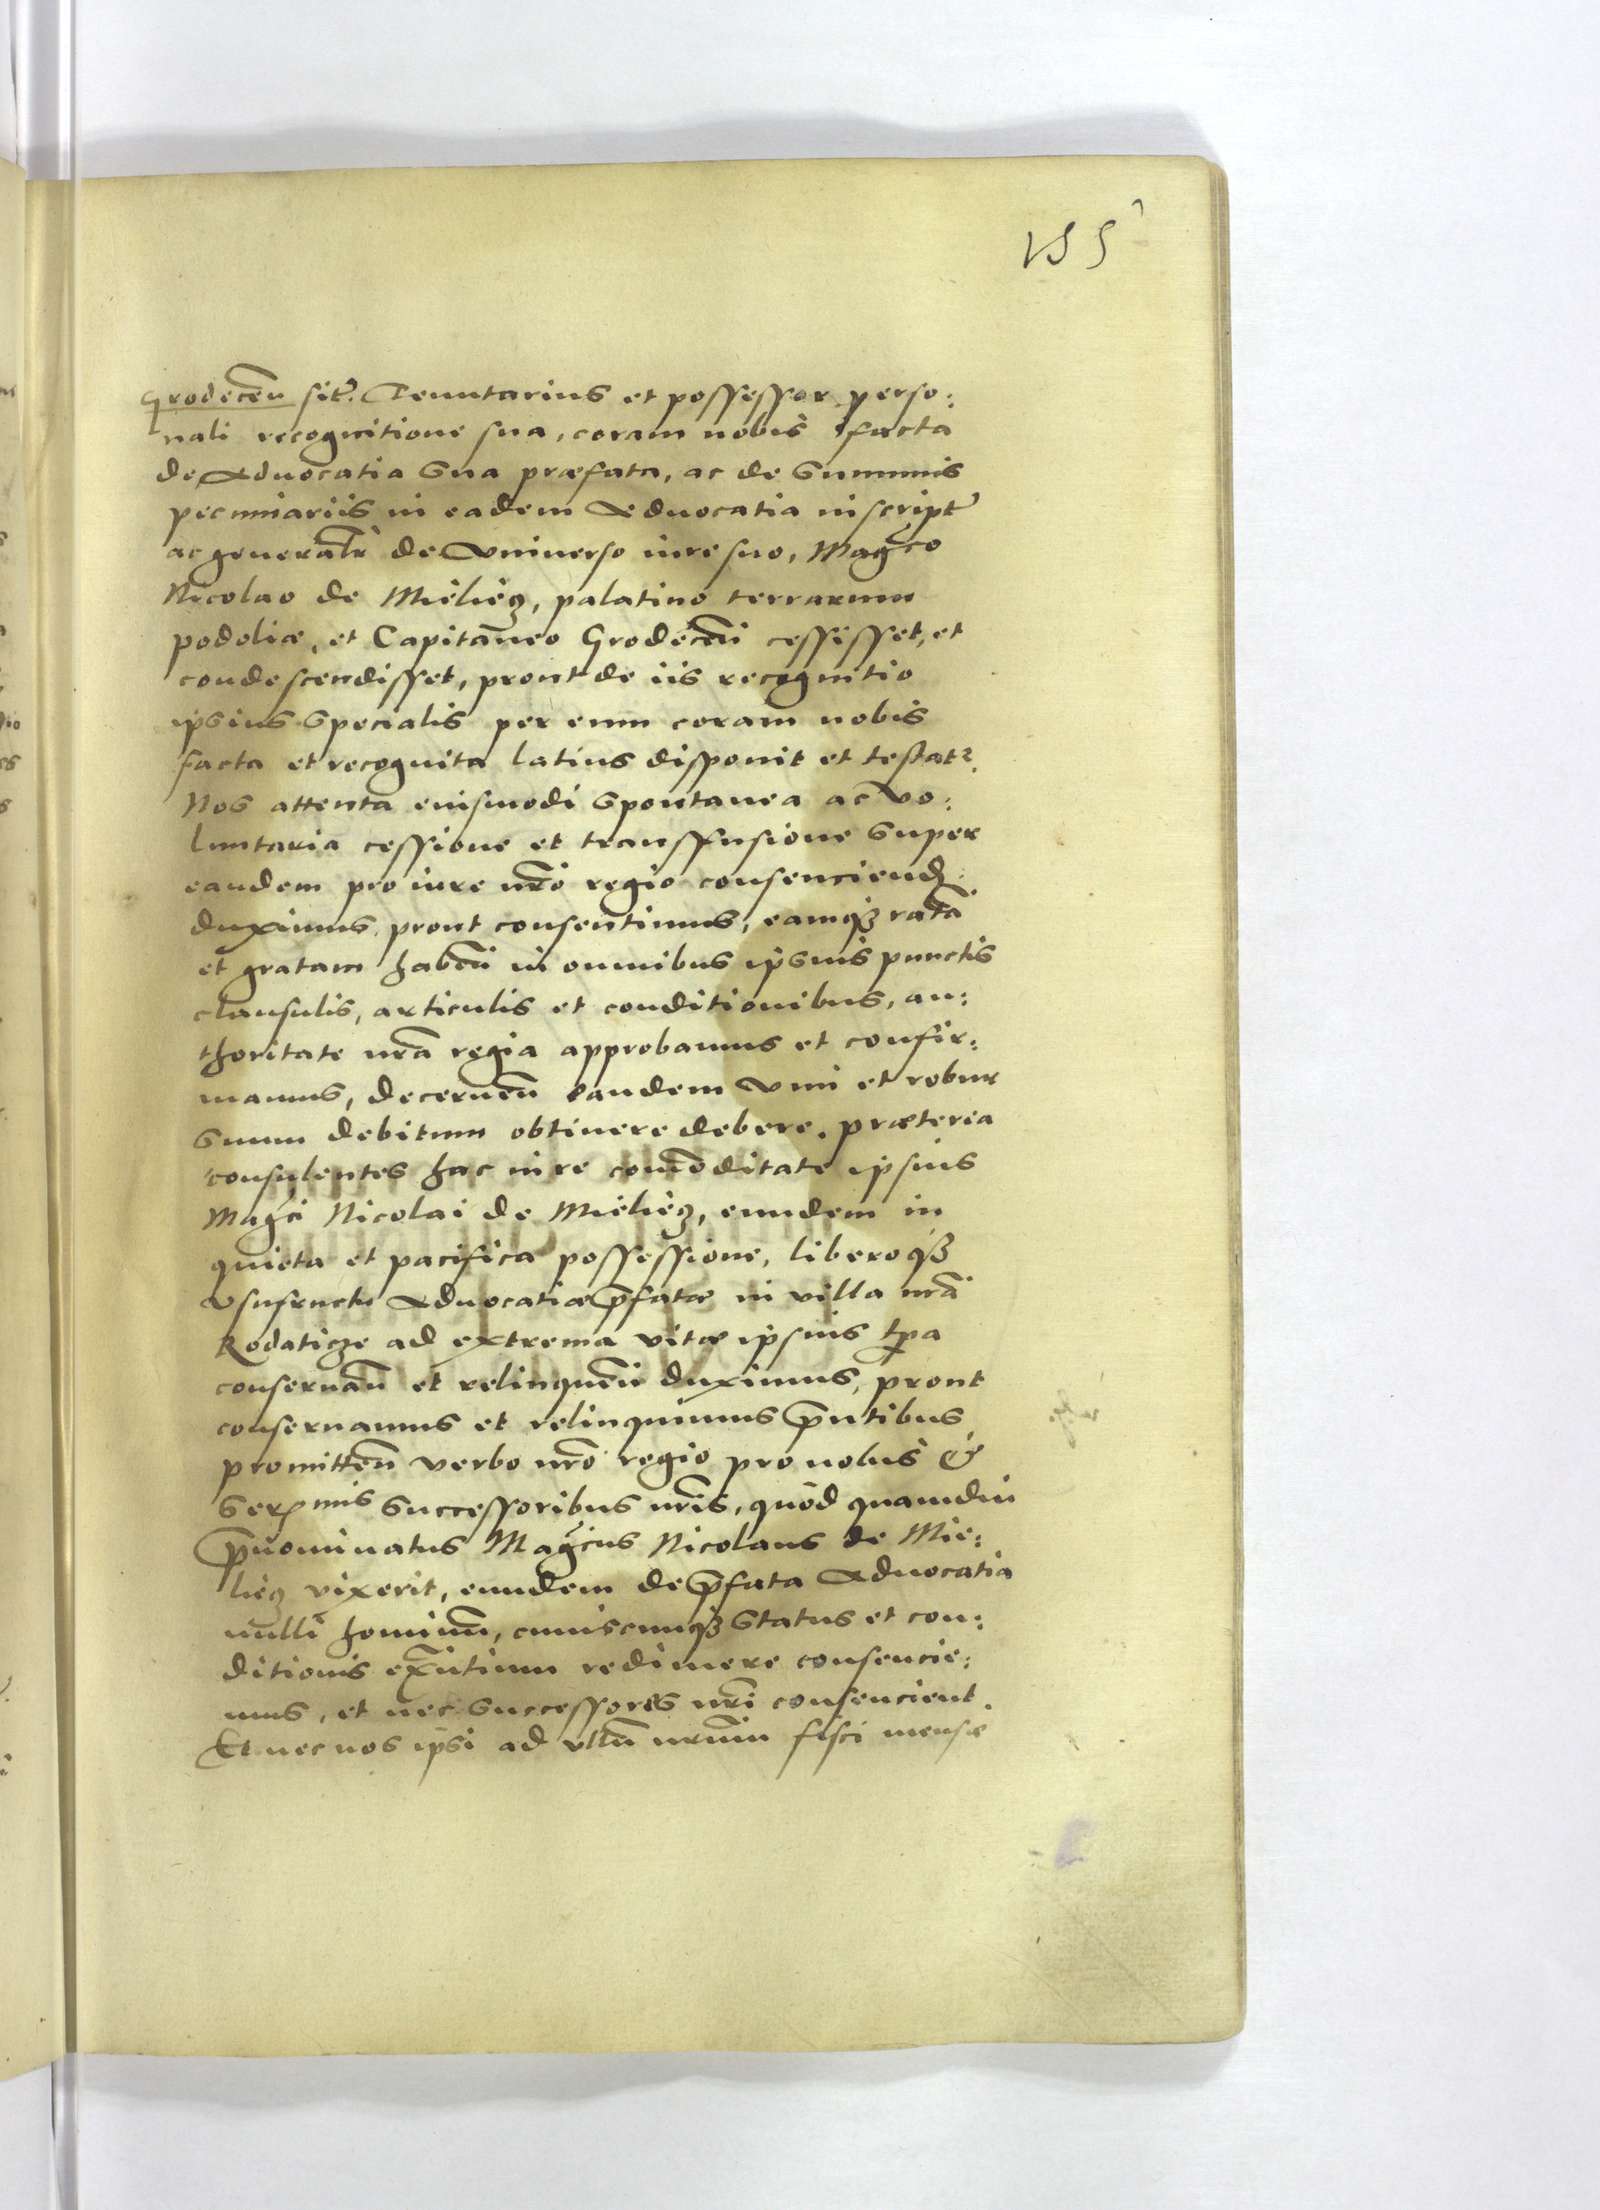 155
Grodecen̄ sit̃. Tenutarius et possessor perso:
nali recognitione sua, coram nobis facta
de Aduocatia sua præfata, ac de summis
pecuniariis in eadem Aduocatia inscript̃
ac generalr̃ de Vniuerso iure suo, Magco
Nicolao de Mieliecz, palatino terrarum
podoliæ, et Capitaneo Grodecen̄ cessisset, et
condescendisset, prout de iis recognitio
ipsius specialis per eum coram nobis
facta et recognita latius disponit et testatr.
Nos attenta eiusmodi spontanea ac vo:
luntaria cessione et transfusione super
eandem pro iure nr̃o regio consenciend
duximus, prout consentimus, eamqȝ ratā
et gratam haben̄ in omnibus ipsius punctis
clausulis, articulis et conditionibus, au:
thoritate nr̃a regia approbamus et confir:
mamus, decernen̄ eandem vim et robur
suum debitum obtinere debere. præterea
consulentes hac in re com̄oditate ipsius
Magci Nicolai de Mieliecz, eundem in
quieta et pacifica possessione, liberoqȝ
Vsufructu Aduocatiæ p̄fatæ in villa nr̃a
Rodaticze ad extrema vitæ ipsius tp̄a
conseruan̄ et relinquen̄ duximus, prout
conseruamus et relinquimus p̄ntibus,
promitten̄ verbo nr̃o regio pro nobis &
Serᵐⁱˢ Successoribus nr̃is, quod quamdiu
p̄nominatus Magcus Nicolaus de Mie:
liecz vixerit, eundem de p̄fata Aduocatia
nulli hominū, cuiuscunqȝ status et con:
ditionis ex̄ntium redimere consencie:
mus, et nec successores nr̃i consencient.
Et nec nos ipsi ad vllū nr̄um fisci mensæ